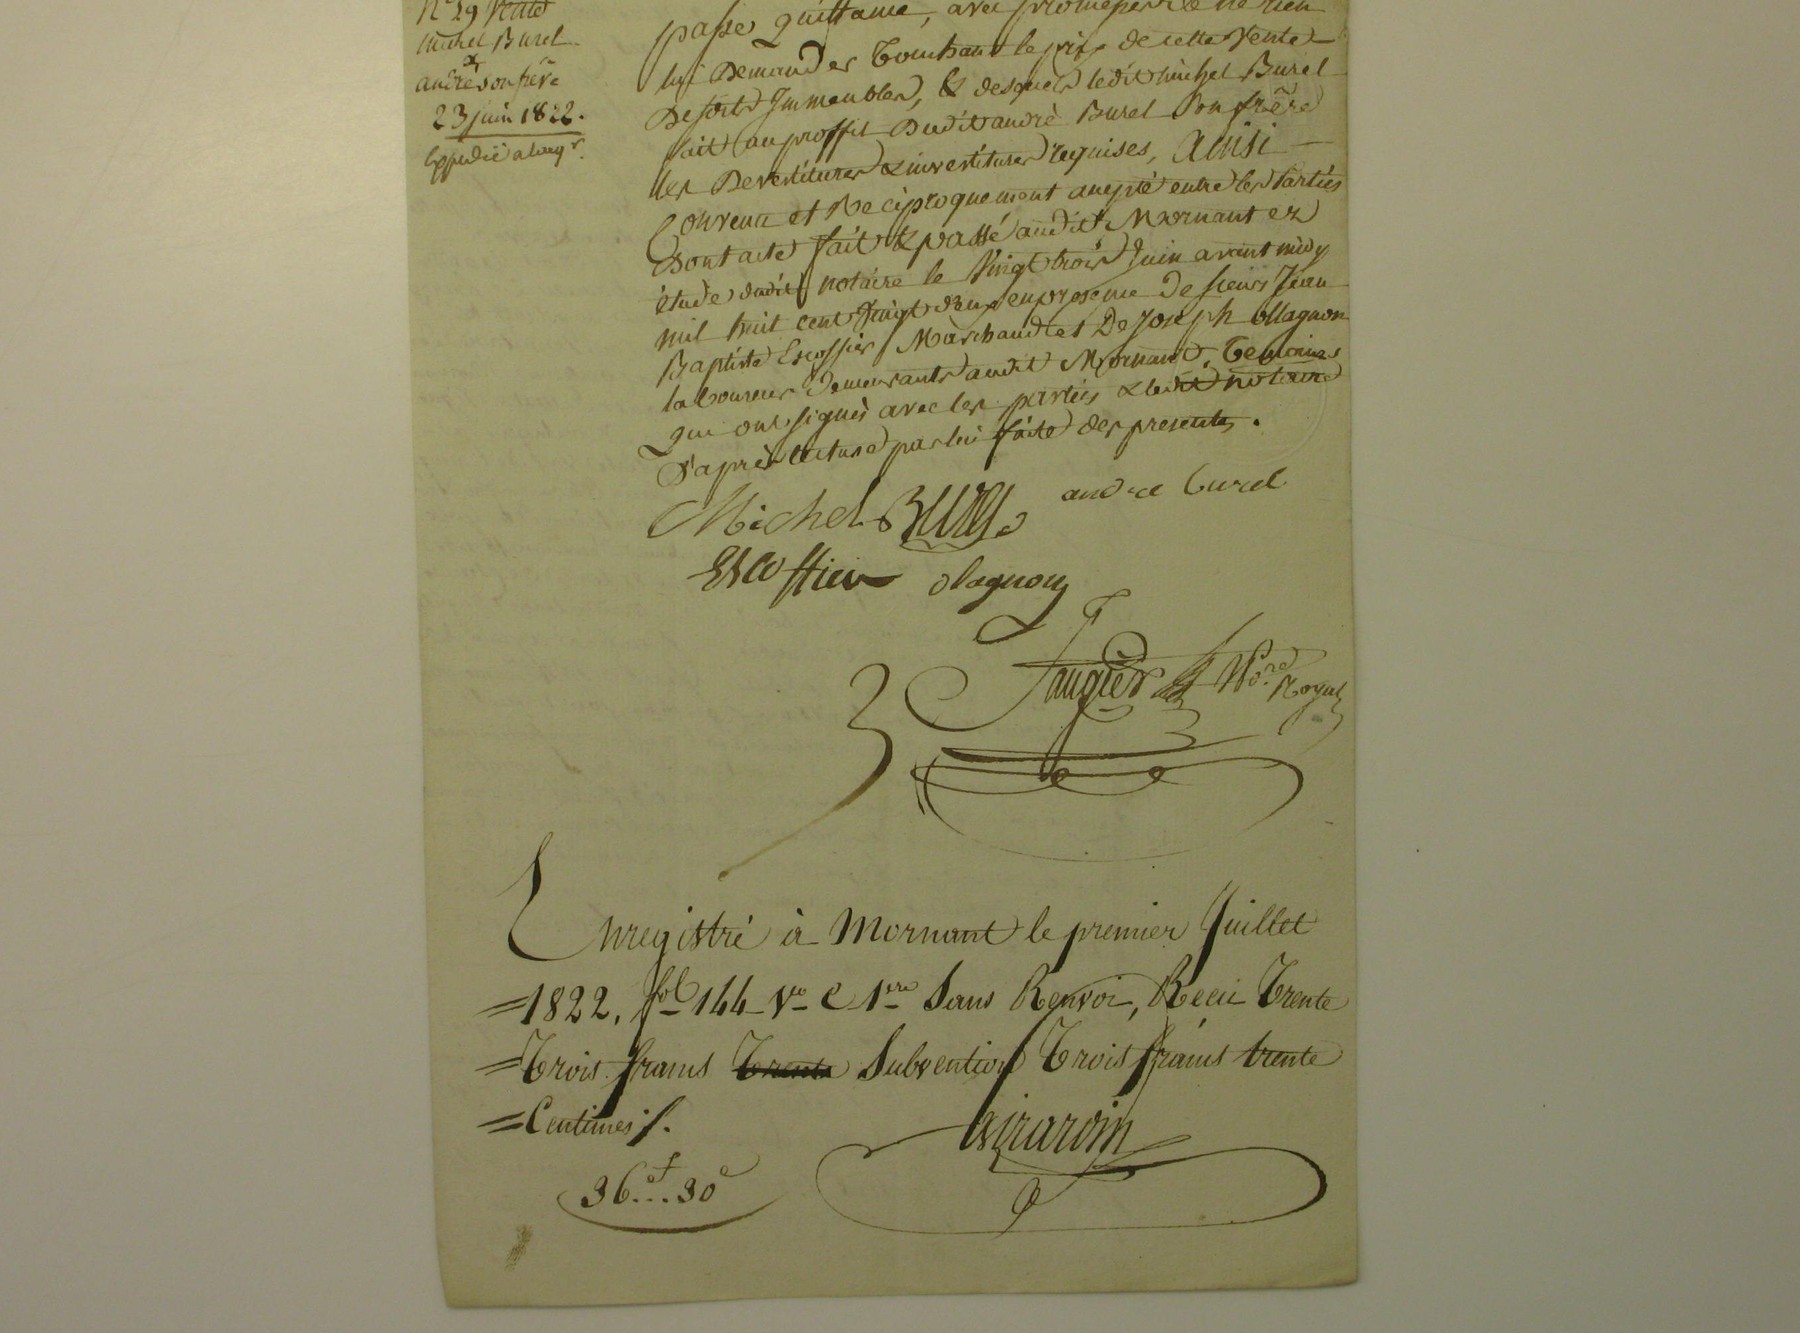 N° 29 Vente
michel Burel
à
andré son frère
23 juin 1822.
Expedié a l'acqr.
passe quittance, avec promesse de ne rien
lui Demander Touchant le prix de cette Vente
Desdits Immeubles, & desquels ledit michel Burel
fait au proffit Dudit andré Burel Son frère
les Devestitures & investitures requises, Ainsi
Convenu et Réciproquement accepté entre les Parties
Dont acte fait & passé audit Mornant ez
étude dudit notaire le Vingt trois Juin avant midy
mil huit cent Vingt deux en presence De sieurs Jean
Baptiste Escoffier Marchand et De Joseph ollagnon
laboureur Demeurants audit Mornant, Temoins
qui ont signés avec les parties & ledit notaire
D'après lecture par lui faite des presentes.
Michel Burel andre burel
Escoffier olagnon
Faugier Nore Royal
Enregistré à Mornant le premier Juillet
=1822, fol 144 Vo C 1ere Sans Renvoi, Reçu Trente
=Trois francs Trente Subvention Trois francs trente
=Centimes ƒ.
Girardin
36f...30c